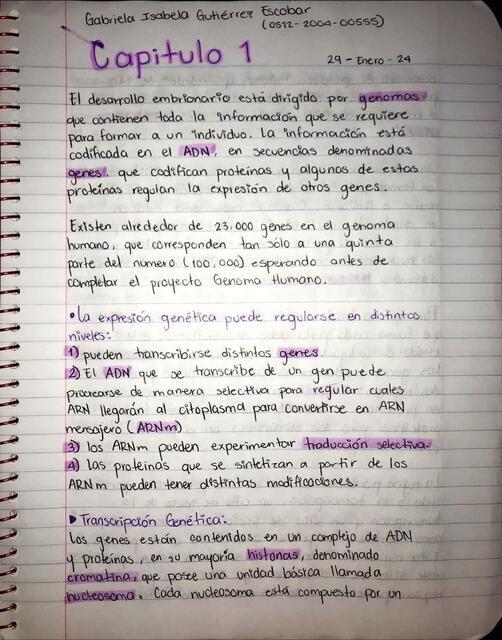 Gabriela Isabela Gutiérrez Escobar
(0512-2004-00555)
Capitulo 1
29 - Enero - 24
El desarrollo embrionario está dirigido por genomas
que contienen toda la información que se requiere
para formar a un individuo. La información está
codificada en el ADN, en secuencias denominadas
genes, que codifican proteínas y algunas de estas
proteínas regulan la expresión de otros genes.
Existen alrededor de 23.000 genes en el genoma
humano, que corresponden tan sólo a una quinta
parte del numero (100,000) esperando antes de
completar el proyecto Genoma Humano.
• La expresión genética puede regularse en distintos
niveles:
1) pueden transcribirse distintos genes.
2) El ADN que se transcribe de un gen puede
procesarse de manera selectiva para regular cuales
ARN llegarán al citoplasma para convertirse en ARN
mensajero (ARNm)
3) los ARNm pueden experimentar traducción selectiva.
4) Las proteínas que se sintetizan a partir de los
ARNm pueden tener distintas modificaciones.
▶ Transcripción Genética:
Los genes están contenidos en un complejo de ADN
y proteínas, en su mayoría histonas, denominado
cromatina, que posee una unidad básica llamada
nucleosoma. Cada nucleosoma está compuesto por un